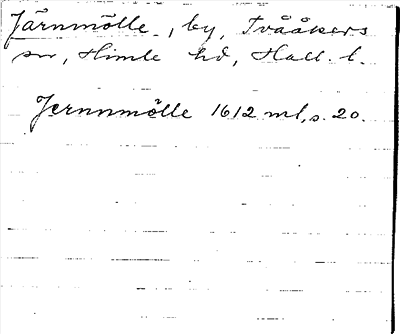 Järnmölle, by, Tvååkers
sn, Himle hd, Hall. l.
Jernnmölle 1612 ml, s. 20.